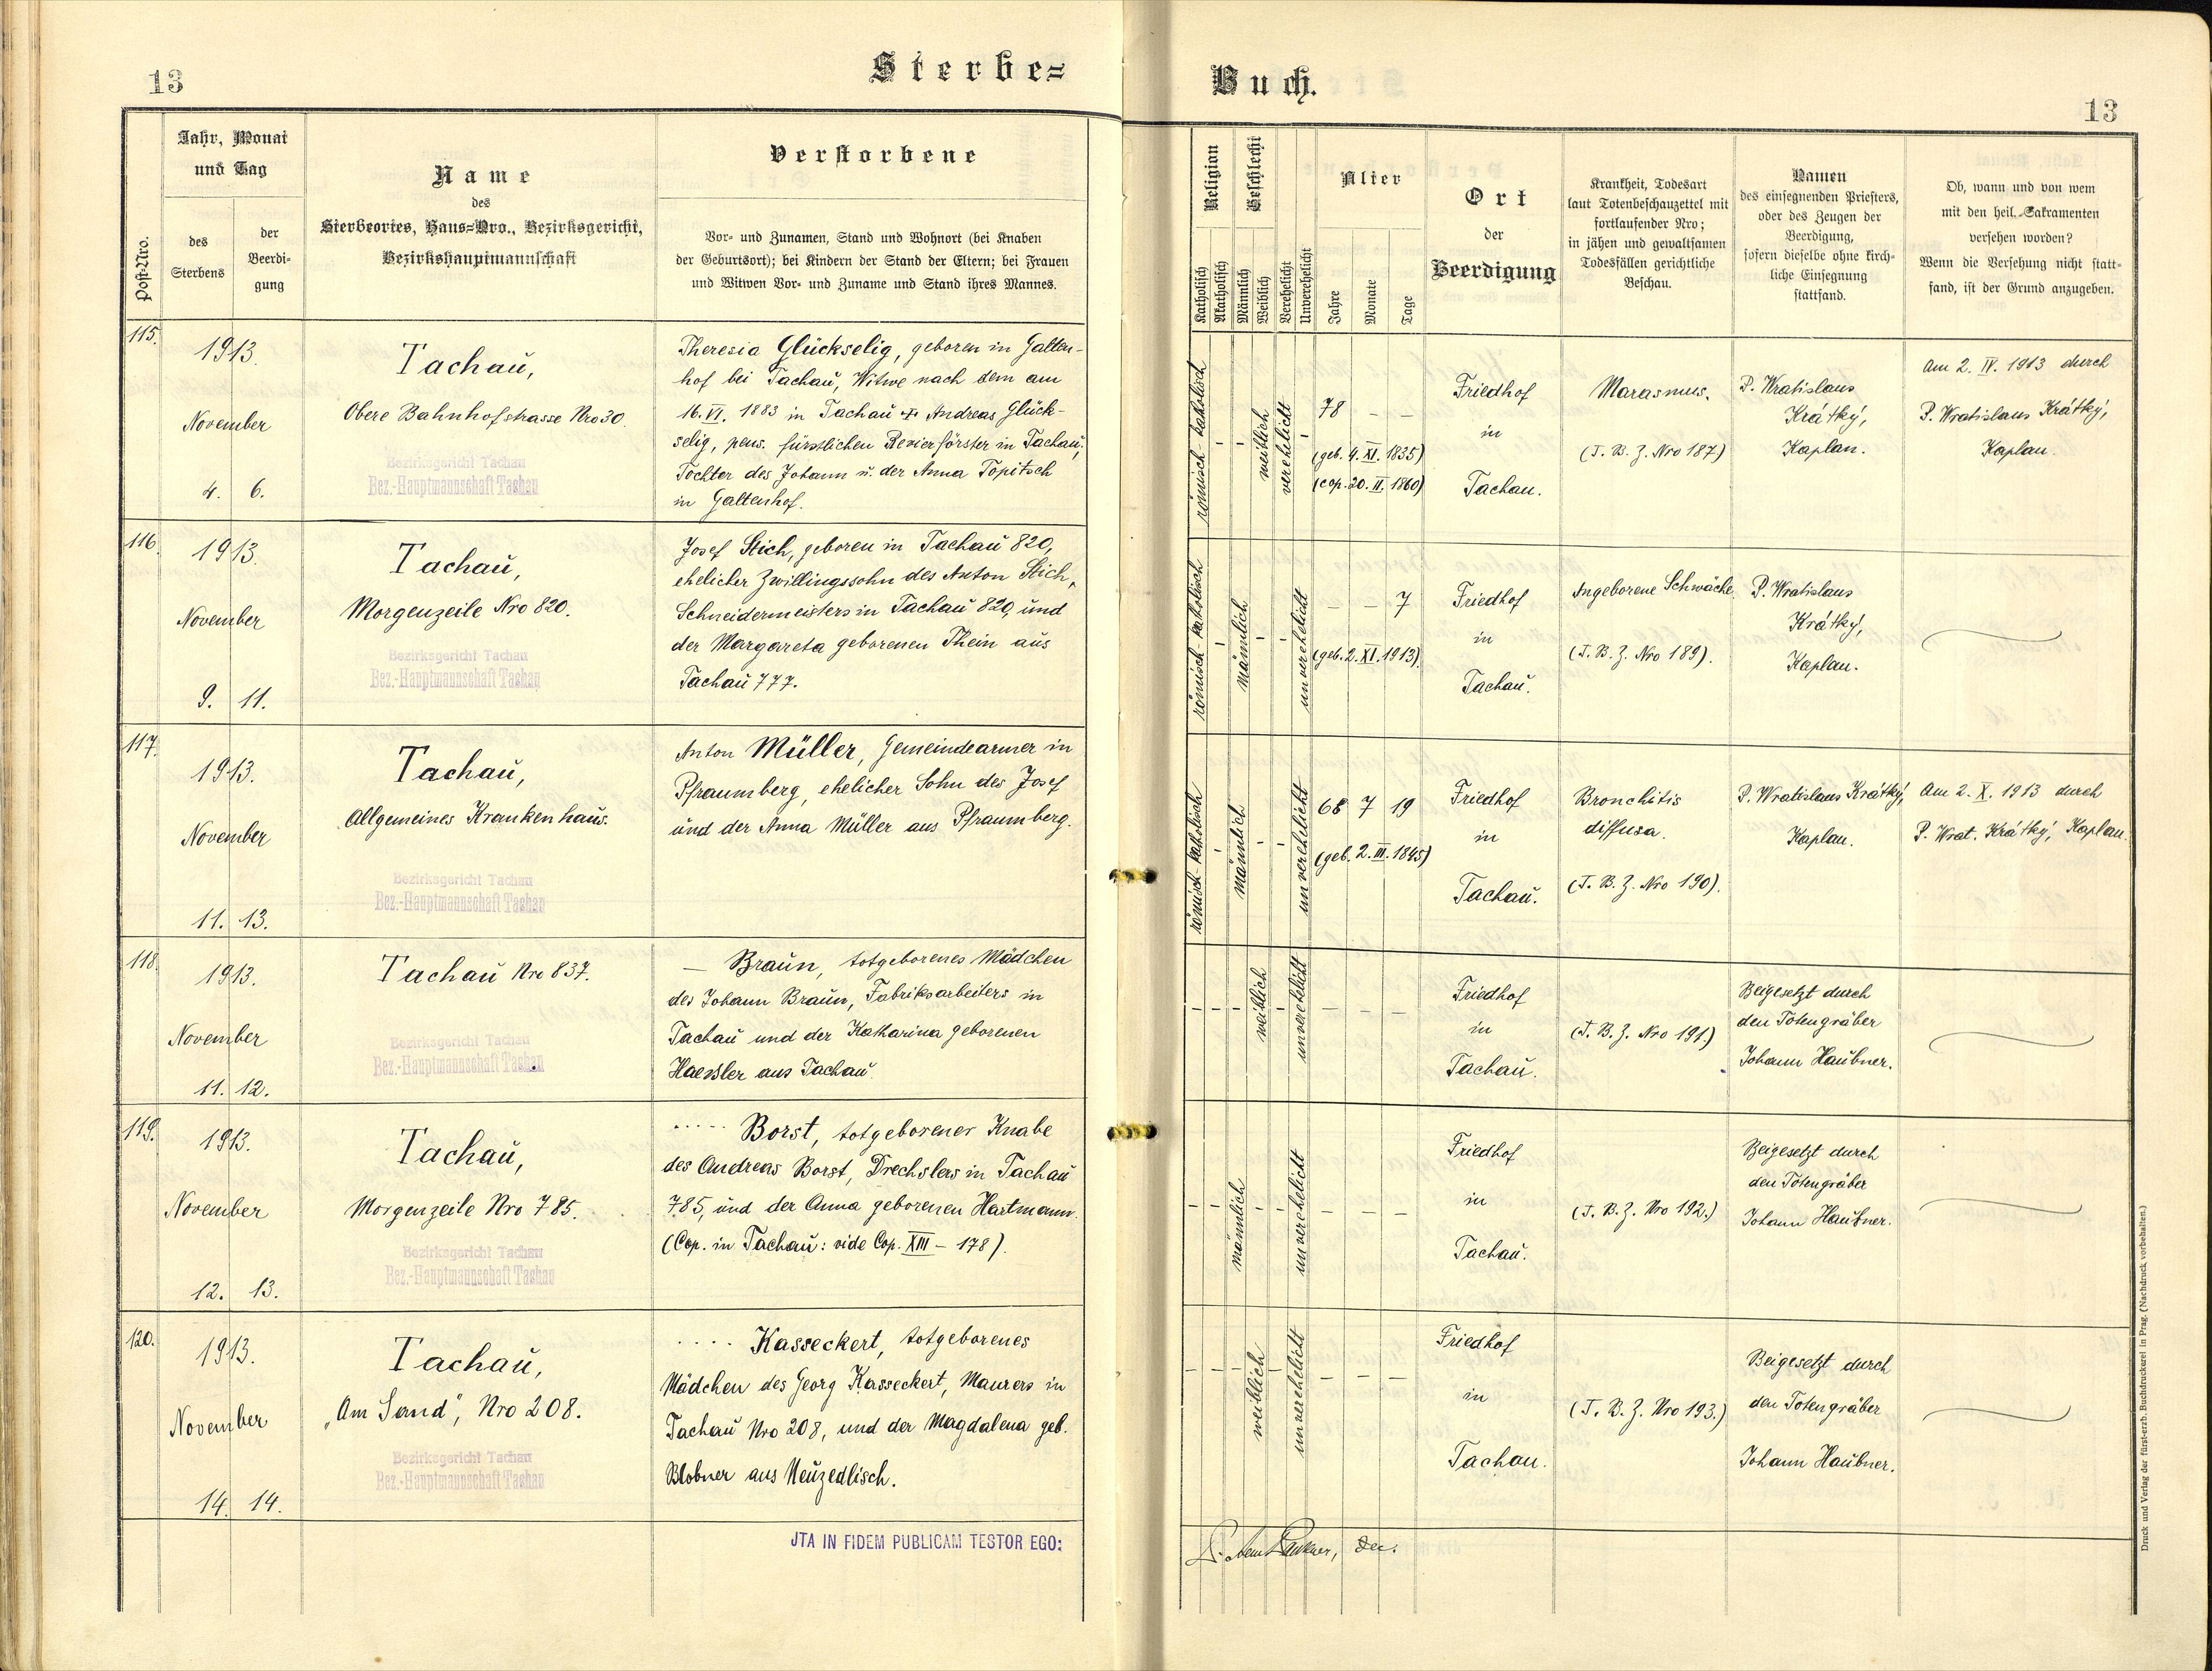 13
Sterbe=
Buch.
13
Post-Nro.
Jahr, Monat
und Tag
des
Sterbens
der
Beerdi-
gung
Name
des
Sterbeortes, Haus-Nro., Bezirksgericht,
Bezirkshauptmannschaft
Verstorbene
Vor- und Zunamen, Stand und Wohnort (bei Knaben
der Geburtsort); bei Kindern der Stand der Eltern; bei Frauen
und Witwen Vor- und Zuname und Stand ihres Mannes.
Religion
Katholisch
Akatholisch
Geschlecht
Männlich
Weiblich
Verehelicht
Unverehelicht
Alter
Jahre
Monate
Tage
Ort
der
Beerdigung
Krankheit, Todesart
laut Totenbeschauzettel mit
fortlaufender Nro;
in jähen und gewaltsamen
Todesfällen gerichtliche
Beschau.
Namen
des einsegnenden Priesters,
oder des Zeugen der
Beerdigung,
sofern dieselbe ohne kirch-
liche Einsegnung
stattfand.
Ob, wann und von wem
mit den heil. Sakramenten
versehen worden?
Wenn die Versehung nicht statt-
fand, ist der Grund anzugeben.
115.
1913.
November
4. 6.
Tachau,
Obere Bahnhofstrasse Nro 30.
Bezirksgericht Tachau
Bez.-Hauptmannschaft Tachau
Theresia Glückselig, geboren in Galten-
hof bei Tachau, Witwe nach dem am
16. VI. 1883 in Tachau + Andreas Glück-
selig, pens. fürstlichen Revierförster in Tachau,
Tochter des Johann u. der Anna Topitsch
in Galtenhof.
römisch-katholisch
- -
weiblich
verehelicht
-
78 - -
(geb. 4. XI. 1835)
(cop. 20. II. 1860)
Friedhof
in
Tachau.
Marasmus.
(T. B. Z. Nro 187)
P. Wratislaus
Krátký,
Kaplan.
Am 2. IV. 1913 durch
P. Wratislaus Krátký,
Kaplan.
116.
1913.
November
9. 11.
Tachau,
Morgenzeile Nro 820.
Bezirksgericht Tachau
Bez.-Hauptmannschaft Tachau
Josef Stich, geboren in Tachau 820,
ehelicher Zwillingssohn des Anton Stich,
Schneidermeisters in Tachau 820, und
der Margareta geborenen Thein aus
Tachau 777.
römisch-katholisch
-
männlich
- -
unverehelicht
- - 7
(geb. 2. XI. 1913).
Friedhof
in
Tachau.
Angeborene Schwäche.
(T. B. Z. Nro 189).
P. Wratislaus
Krátký,
Kaplan.
117.
1913.
November
11. 13.
Tachau,
Allgemeines Krankenhaus.
Bezirksgericht Tachau
Bez.-Hauptmannschaft Tachau
Anton Müller, Gemeindearmer in
Pfraumberg, ehelicher Sohn des Josef
und der Anna Müller aus Pfraumberg.
römisch-katholisch
-
männlich
- -
unverehelicht
68 7 19
(geb. 2. III. 1845)
Friedhof
in
Tachau.
Bronchitis
diffusa.
(T. B. Z. Nro 190).
P. Wratislaus Krátký,
Kaplan.
Am 2. X. 1913 durch
P. Wrat. Krátký, Kaplan.
118.
1913.
November
11. 12.
Tachau Nro 837.
Bezirksgericht Tachau
Bez.-Hauptmannschaft Tachau
— Braun, totgeborenes Mädchen
des Johann Braun, Fabriksarbeiters in
Tachau und der Katharina geborenen
Haessler aus Tachau.
- - -
weiblich
-
unverehelicht
- - -
Friedhof
in
Tachau.
(T. B. Z. Nro 191.)
Beigesetzt durch
den Totengräber
Johann Haubner.
119.
1913.
November
12. 13.
Tachau,
Morgenzeile Nro 785.
Bezirksgericht Tachau
Bez.-Hauptmannschaft Tachau
..... Borst, totgeborener Knabe
des Andreas Borst, Drechslers in Tachau
785, und der Anna geborenen Hartmann.
(Cop. in Tachau: vide Cop. XIII - 178).
- -
männlich
- -
unverehelicht
- - -
Friedhof
in
Tachau.
(T. B. Z. Nro 192.)
Beigesetzt durch
den Totengräber
Johann Haubner.
120.
1913.
November
14. 14.
Tachau,
„Am Sand", Nro 208.
Bezirksgericht Tachau
Bez.-Hauptmannschaft Tachau
.... Kasseckert, totgeborenes
Mädchen des Georg Kasseckert, Maurers in
Tachau Nro 208, und der Magdalena geb.
Blobner aus Neuzedlisch.
- - -
weiblich
-
unverehelicht
- - -
Friedhof
in
Tachau.
(T. B. Z. Nro 193.)
Beigesetzt durch
den Totengräber
Johann Haubner.
JTA IN FIDEM PUBLICAM TESTOR EGO:
Dec.
Druck und Verlag der fürst-erzb. Buchdruckerei in Prag. (Nachdruck vorbehalten.)